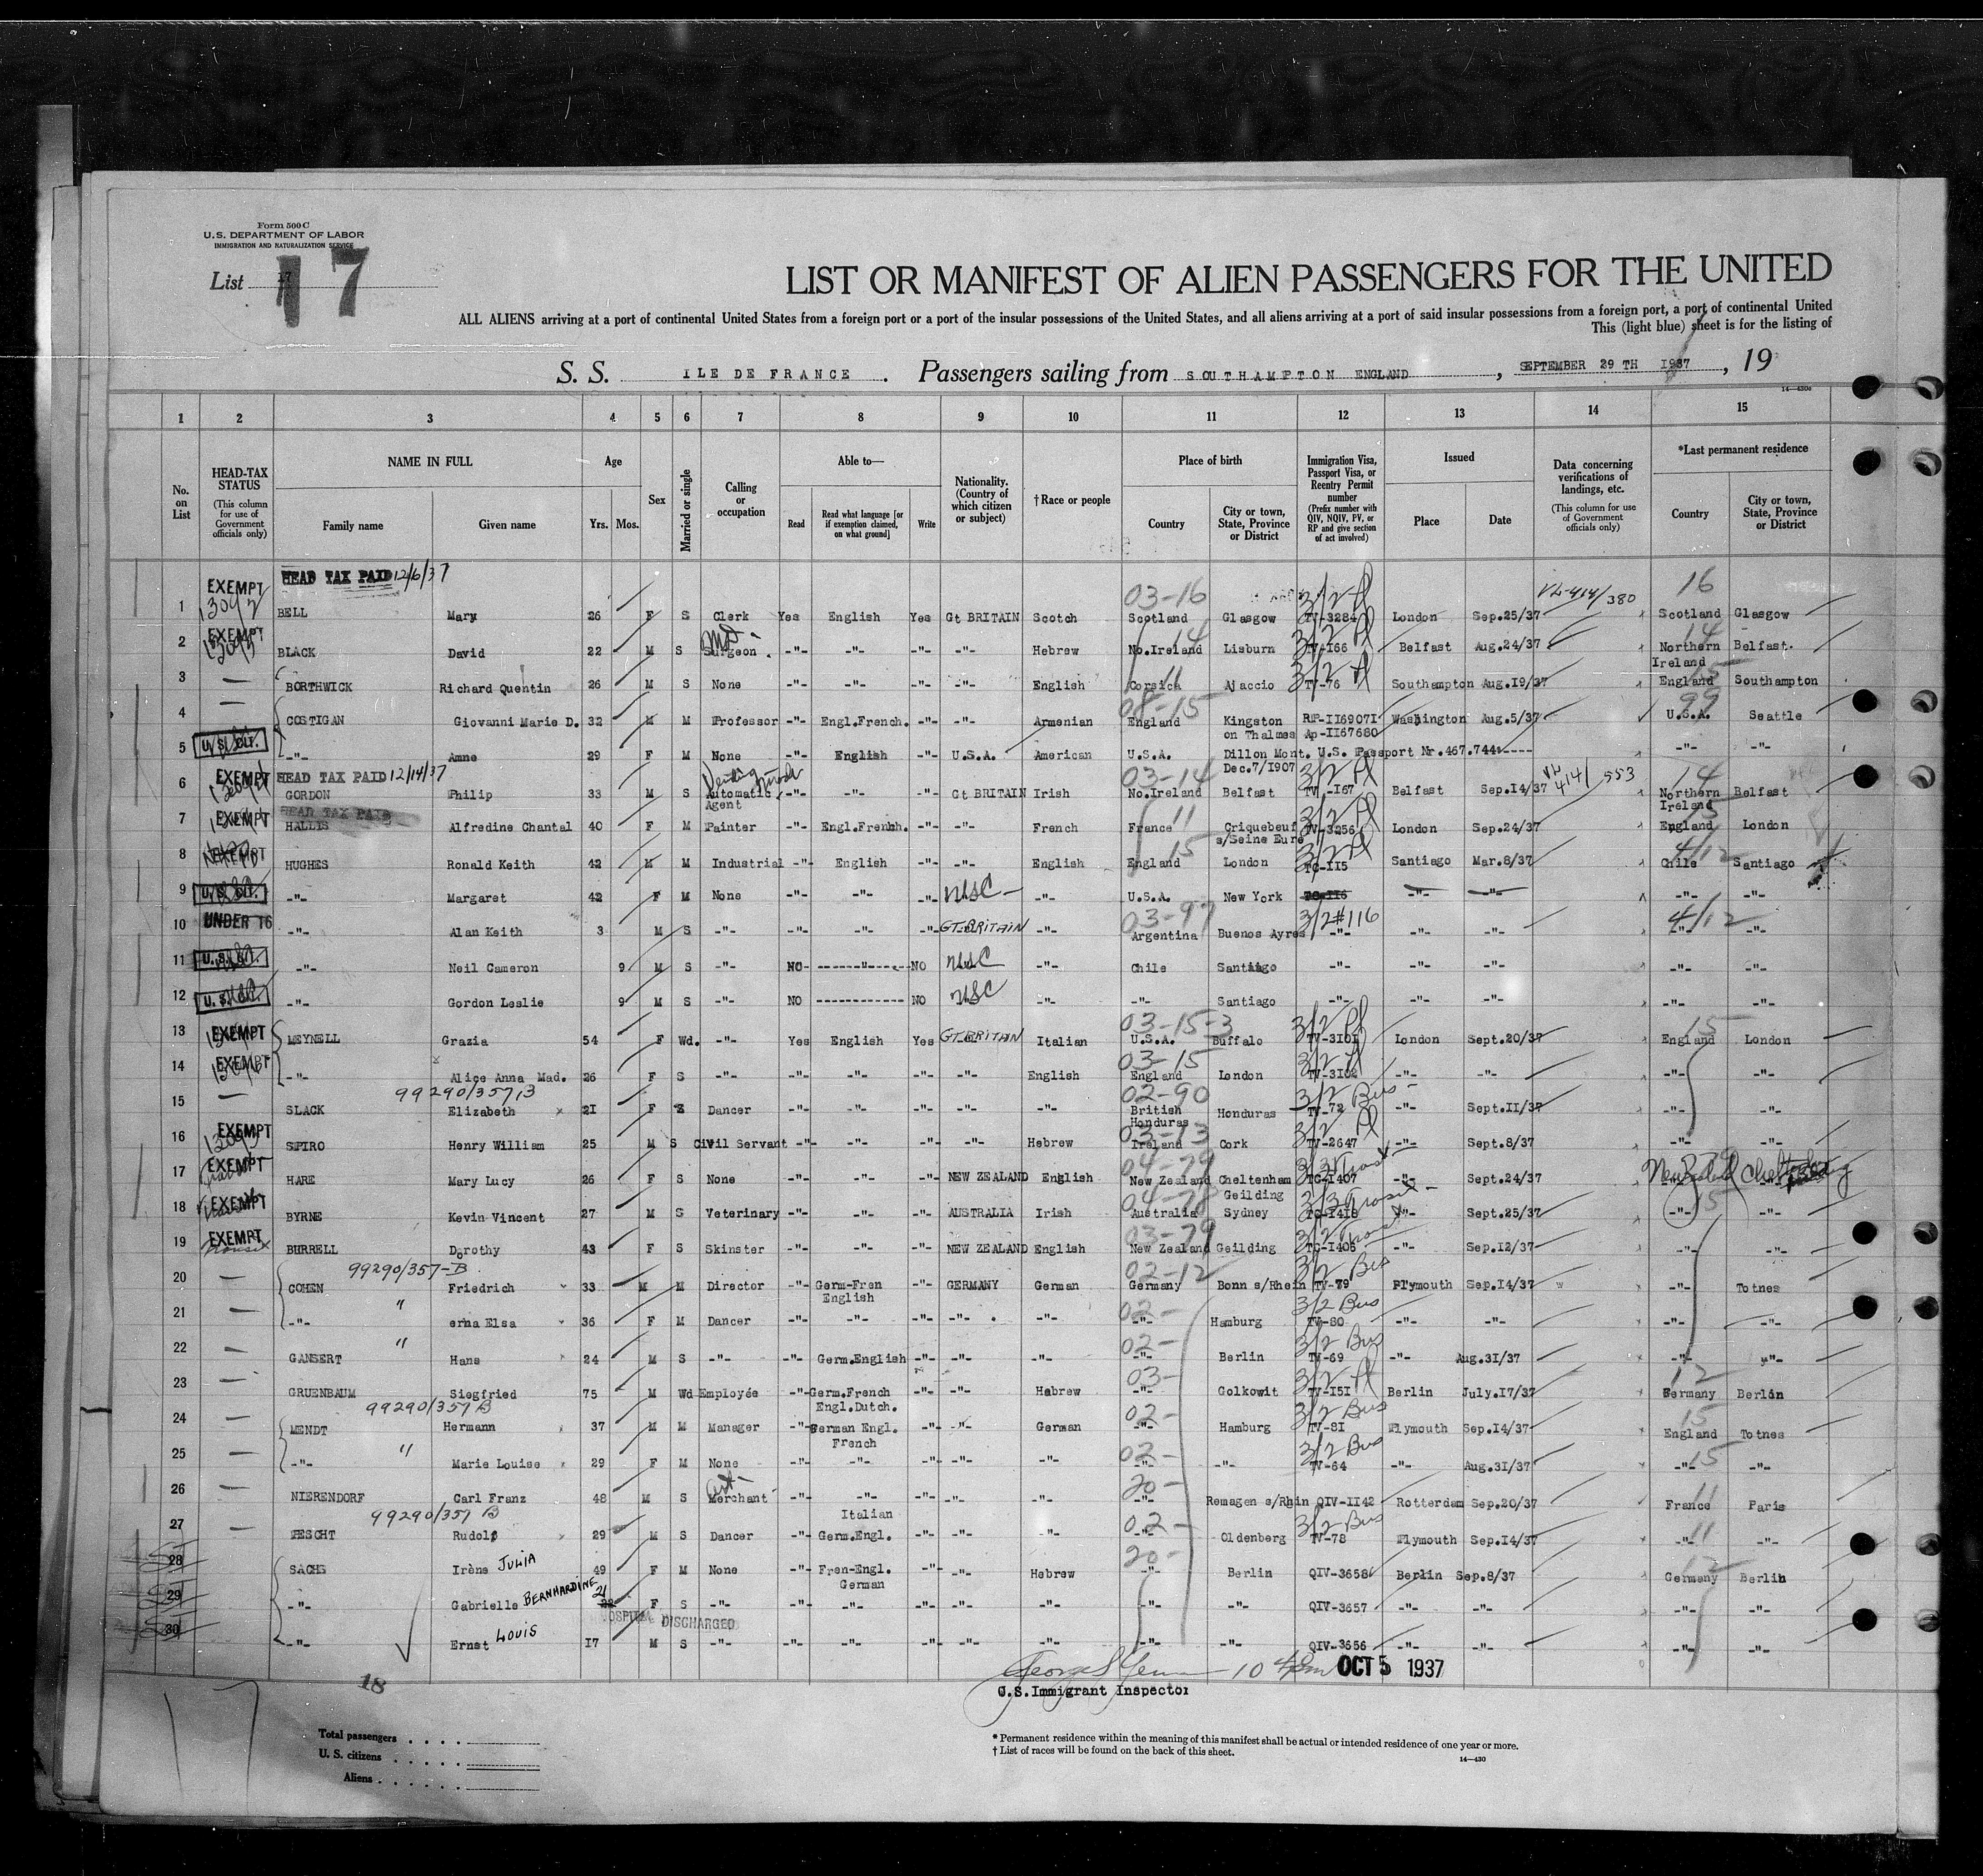 Form 500 C
U.S. DEPARTMENT OF LABOR
IMMIGRATION AND NATURALIZATION SERVICE
List 17
17
LIST OR MANIFEST OF ALIEN PASSENGERS FOR THE UNITED
ALL ALIENS arriving at a port of continental United States from a foreign port or a port of the insular possessions of the United States, and all aliens arriving at a port of said insular possessions from a foreign port, a port of continental United
This (light blue) sheet is for the listing of
S. S. ILE DE FRANCE. Passengers sailing from SOUTHAMPTON ENGLAND, SEPTEMBER 29 TH 1937, 19
14—430a
1 2 3 4 5 6 7 8 9 10 11 12 13 14 15
No. on List
HEAD-TAX STATUS (This column for use of Government officials only)
NAME IN FULL Family name Given name
Age Yrs. Mos.
Sex
Married or single
Calling or occupation
Able to— Read Read what language [or if exemption claimed, on what ground] Write
Nationality. (Country of which citizen or subject)
†Race or people
Place of birth Country City or town, State, Province or District
Immigration Visa, Passport Visa, or Reentry Permit number (Prefix number with QIV, NQIV, PV, or RP and give section of act involved)
Issued Place Date
Data concerning verifications of landings, etc. (This column for use of Government officials only)
*Last permanent residence Country City or town, State, Province or District
HEAD TAX PAID 12/6/37 03-16 3/2 16
1 EXEMPT BELL Mary 26 F S Clerk Yes English Yes Gt BRITAIN Scotch Scotland Glasgow TV-3284 London Sep.25/37 VL-414/380 Scotland Glasgow
14 3/2 14
2 EXEMPT BLACK David 22 M S Surgeon. -"- -"- -"- -"- Hebrew No.Ireland Lisburn TV-166 Belfast Aug.24/37 Northern Ireland Belfast.
11 3/2 15
3 — BORTHWICK Richard Quentin 26 M S None -"- -"- -"- -"- English Corsica Ajaccio TV-76 Southampton Aug.19/37 England Southampton
08-15 99
4 — COSTIGAN Giovanni Marie D. 32 M M Professor -"- Engl.French. -"- -"- Armenian England Kingston on Thalmes RP-1169071 Ap-1167680 Washington Aug.5/37 U.S.A. Seattle
5 U.S. CIT. -"- Anne 29 F M None -"- English -"- U.S.A. American U.S.A. Dillon Mont. Dec.7/1907 U.S. Passport Nr.467.744----- -"- -"-
HEAD TAX PAID 12/14/37 03-14 3/2 14
6 EXEMPT GORDON Philip 33 M S Automatic Agent -"- -"- -"- Gt BRITAIN Irish No.Ireland Belfast TV -167 Belfast Sep.14/37 VL 414/553 Northern Ireland Belfast
HEAD TAX PAID 11 3/2 15
7 EXEMPT HALLIS Alfredine Chantal 40 F M Painter -"- Engl.French. -"- -"- French France Criquebeuf s/Seine Eure TV-3256 London Sep.24/37 England London
15 3/2 4/12
8 EXEMPT HUGHES Ronald Keith 42 M M Industrial -"- English -"- -"- English England London TC-115 Santiago Mar.8/37 Chile Santiago
9 U.S. CIT. -"- Margaret 42 F M None -"- -"- -"- USC -"- U.S.A. New York TC-116 -"- -"- -"- -"-
03-97 3/2 #116 4/12
10 UNDER 16 -"- Alan Keith 3 M S -"- -"- -"- -"- GT.BRITAIN -"- Argentina Buenos Ayres -"- -"- -"- -"-
11 U.S. CIT. -"- Neil Cameron 9 M S -"- NO -------"-------NO USC -"- Chile Santiago -"- -"- -"- -"- -"-
12 U.S. CIT. -"- Gordon Leslie 9 M S -"- NO ------------ NO USC -"- -"- Santiago -"- -"- -"- -"- -"-
03-15-3 3/2 15
13 EXEMPT MEYNELL Grazia 54 F Wd. -"- Yes English Yes GT.BRITAN Italian U.S.A. Buffalo TV-3101 London Sept.20/37 England London
03-15 3/2
14 EXEMPT -"- Alice Anna Mad. 26 F S -"- -"- -"- -"- -"- English England London TV-3102 -"- -"- -"- -"-
99290/357,B 02-90 3/2 Bus
15 — SLACK Elizabeth 21 F S Dancer -"- -"- -"- -"- -"- British Honduras Honduras TV-72 -"- Sept.11/37 -"- -"-
03-13 3/2
16 EXEMPT SPIRO Henry William 25 M S Civil Servant -"- -"- -"- -"- Hebrew Ireland Cork TV-2647 -"- Sept.8/37 -"- -"-
04-79
17 EXEMPT HARE Mary Lucy 26 F S None -"- -"- -"- NEW ZEALAND English New Zealand Cheltenham Geilding TC-1407 -"- Sept.24/37 New Zealand
04-78 15
18 EXEMPT BYRNE Kevin Vincent 27 M S Veterinary -"- -"- -"- AUSTRALIA Irish Australia Sydney TC-1418 -"- Sept.25/37 -"- -"-
03-79
19 EXEMPT BURRELL Dorothy 43 F S Skinster -"- -"- -"- NEW ZEALAND English New Zealand Geilding TC-1406 -"- Sep.12/37 -"- -"-
99290/357-B 02-12 3/2 Bus
20 — COHEN Friedrich 33 M M Director -"- Germ-Fren English -"- GERMANY German Germany Bonn s/Rhein TV-79 Plymouth Sep.14/37 -"- Totnes
" 02- 3/2 Bus
21 — -"- erna Elsa 36 F M Dancer -"- -"- -"- -"- -"- -"- Hamburg TV-80 -"- -"- -"- -"-
" 02- 3/2 Bus
22 — GANSERT Hans 24 M S -"- -"- Germ.English -"- -"- -"- -"- Berlin TV-69 -"- Aug.31/37 -"- -"-
03- 3/2 12
23 — GRUENBAUM Siegfried 75 M Wd Employée -"- Germ.French Engl.Dutch. -"- -"- Hebrew -"- Golkowit TV-151 Berlin July.17/37 Germany Berlin
99290/357 B 02- 3/2 Bus 15
24 — MENDT Hermann 37 M M Manager -"- German Engl. French -"- -"- German -"- Hamburg TV-81 Plymouth Sep.14/37 England Totnes
" 02- 3/2 Bus 15
25 — -"- Marie Louise 29 F M None -"- -"- -"- -"- -"- -"- -"- TV-64 -"- Aug.31/37 -"- -"-
Art 20- 11
26 — NIERENDORF Carl Franz 48 M S Merchant -"- -"- Italian -"- -"- -"- -"- Remagen s/Rhin QIV-1142 Rotterdam Sep.20/37 France Paris
99290/357 B 02- 3/2 Bus 11
27 — PESCHT Rudolf 29 M S Dancer -"- Germ.Engl. -"- -"- -"- -"- Oldenberg TV-78 Plymouth Sep.14/37 -"- -"-
20- 12
28 SACHS Irène JULIA 49 F M None -"- Fren-Engl. German -"- -"- Hebrew -"- Berlin QIV-3658 Berlin Sep.8/37 Germany Berlin
29 -"- Gabrielle BERNHARDINE 21 F S -"- -"- -"- -"- -"- -"- -"- -"- QIV-3657 -"- -"- -"- -"-
HOSPITAL DISCHARGED
30 -"- Ernst LOUIS 17 M S -"- -"- -"- -"- -"- -"- -"- -"- QIV-3656 -"- -"- -"- -"-
OCT 5 1937
U.S.Immigrant Inspector
18
Total passengers . . . .
U. S. citizens . . . . .
Aliens . . . . . .
* Permanent residence within the meaning of this manifest shall be actual or intended residence of one year or more.
† List of races will be found on the back of this sheet.
14—430